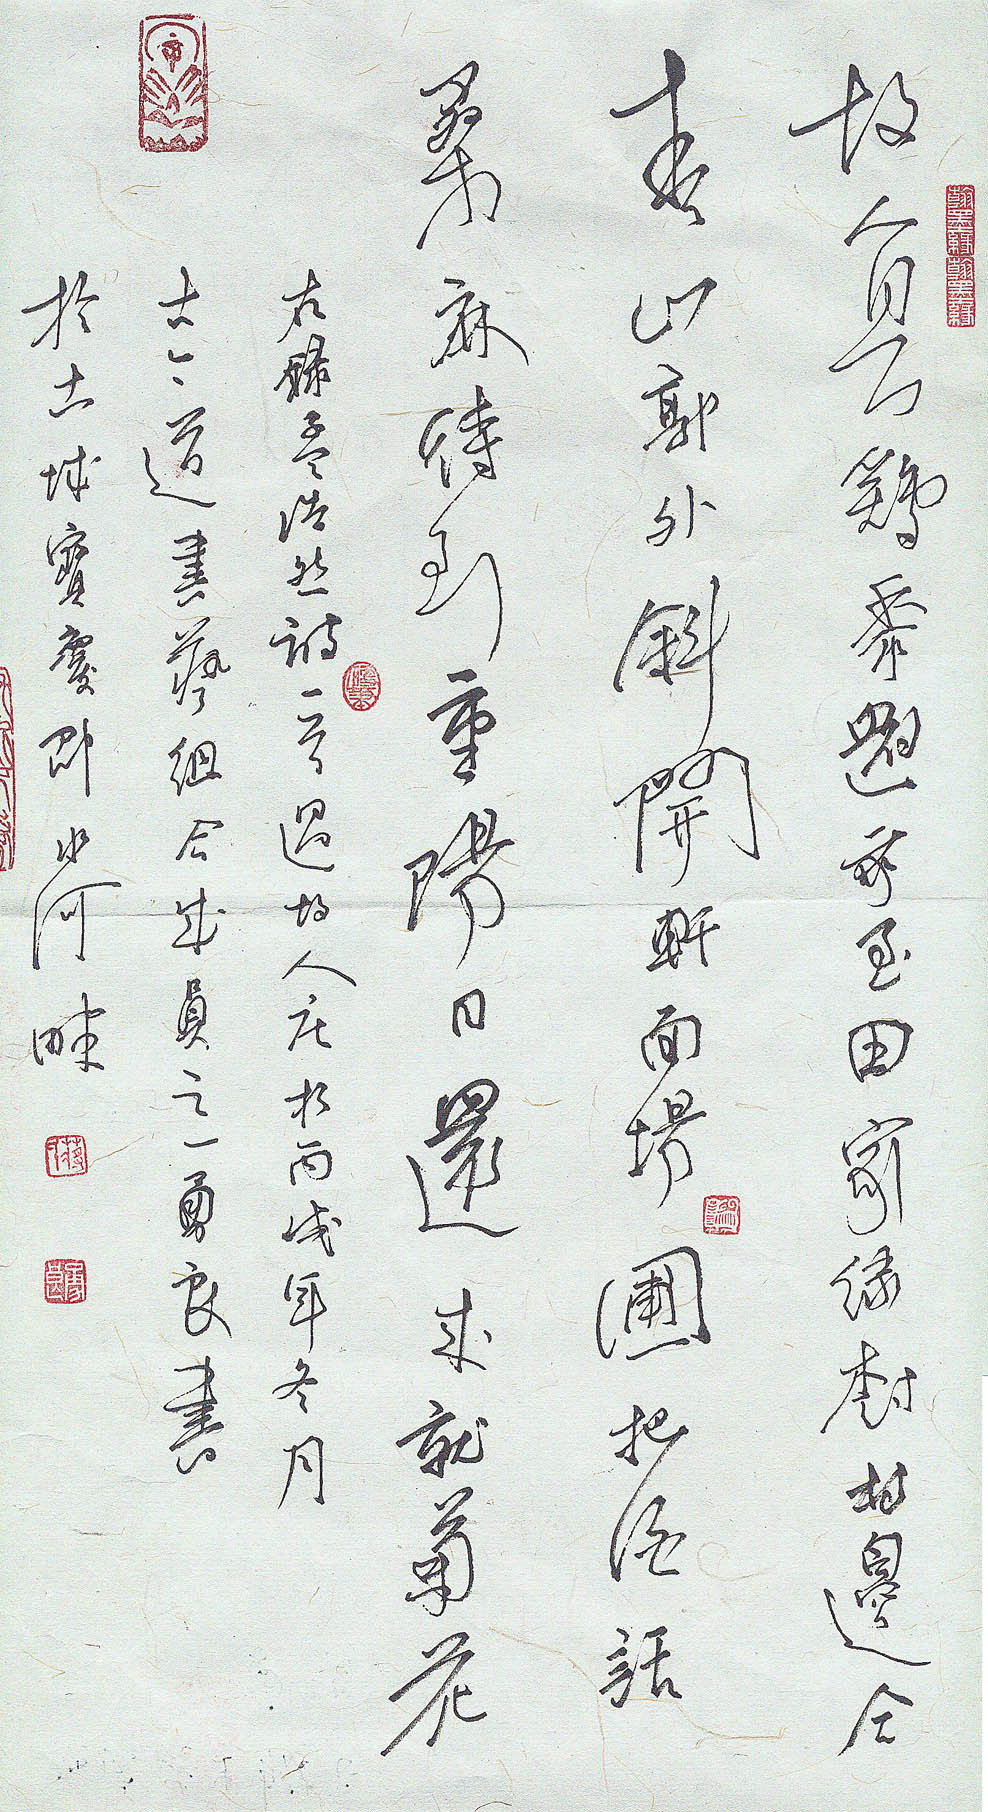 翰墨緣翰墨緣
故人具鷄黍邀我至田家綠樹村邊合
青山郭外斜開軒面場圃把酒話
桑麻待到重陽日還來就菊花
右錄孟浩然詩一首過故人庄於丙戌年冬月
古道書藝組合成員之一勇良書
於古城寶慶邵水河畔